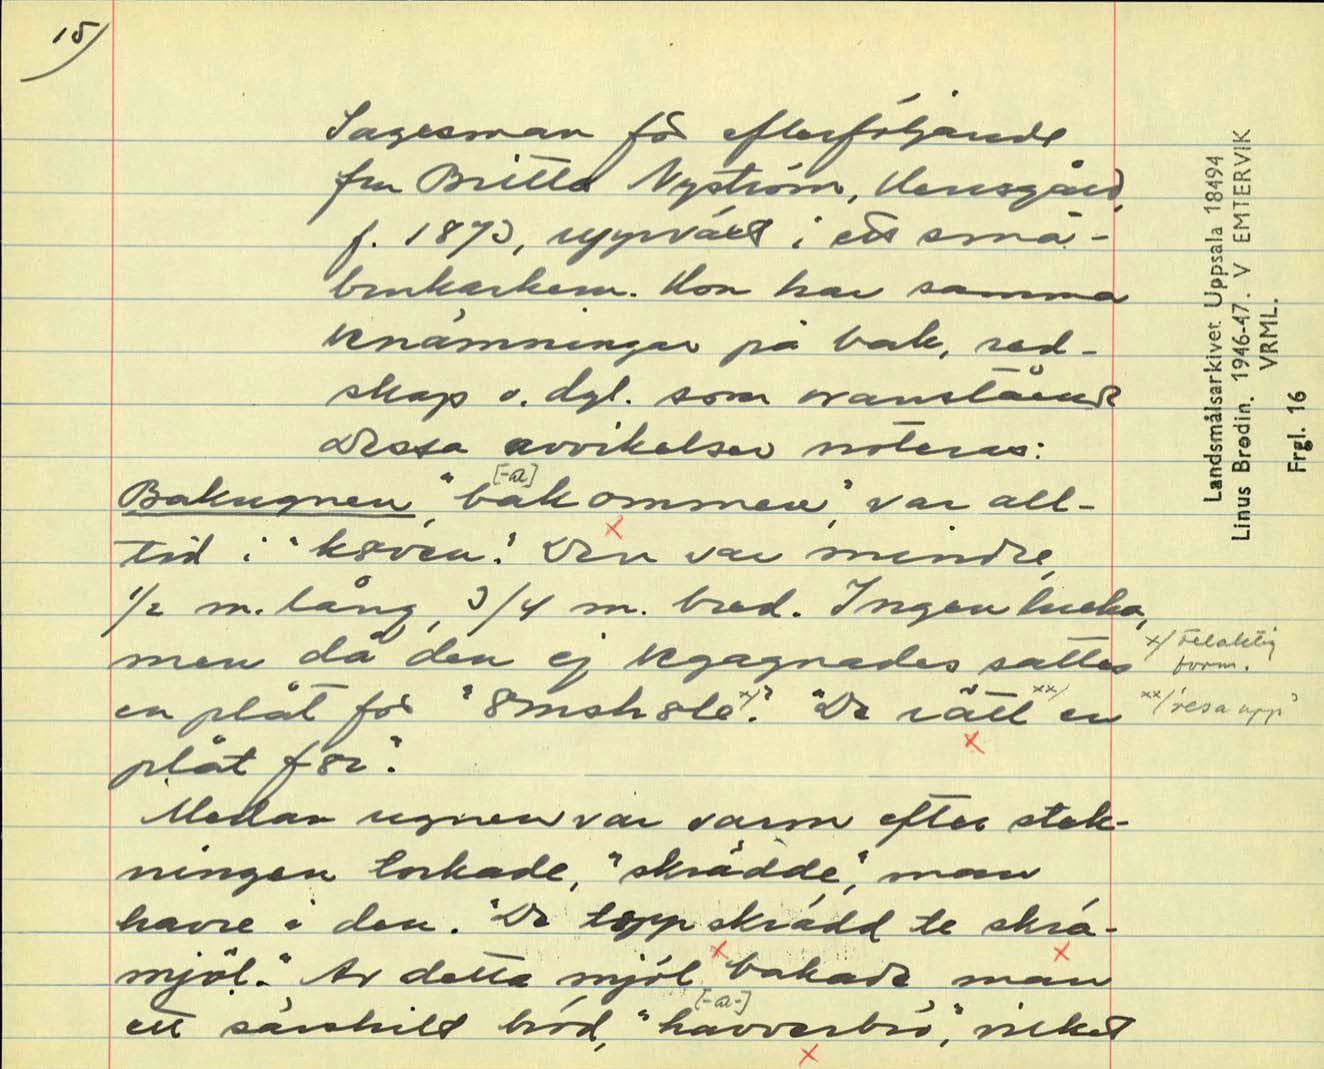 15)
Sagesman för efterföljande
fru Britta Nyström, Herrsgård,
f. 1873, uppväxt i ett små-
brukarhem. Hon har samma
benämningar på bak, red-
skap o. dgl. som ovanstående
Dessa avvikelser noteras:
[-a]
Bakugnen, "bakommen", var all-
tid i "köven". Den var mindre,
1/2 m. lång, 3/4 m. bred. Ingen lucka,
men då den ej begagnades sattes
x/ felaktig
form.
en plåt för "8msh8le x/". "De rätt xx/ en
xx/ 'resa upp'
plåt f8r".
Medan ugnen var varm efter stek-
ningen torkade, "skrädde", man
havre i den. "De skrädd te skrä-
mjöl." Av detta mjöl bakade man
[-a-]
ett särskilt bröd, "havverbrö", vilket
Landsmålsarkivet Uppsala 18494
Linus Brodin. 1946-47. V EMTERVIK
VRML.
Frgl. 16